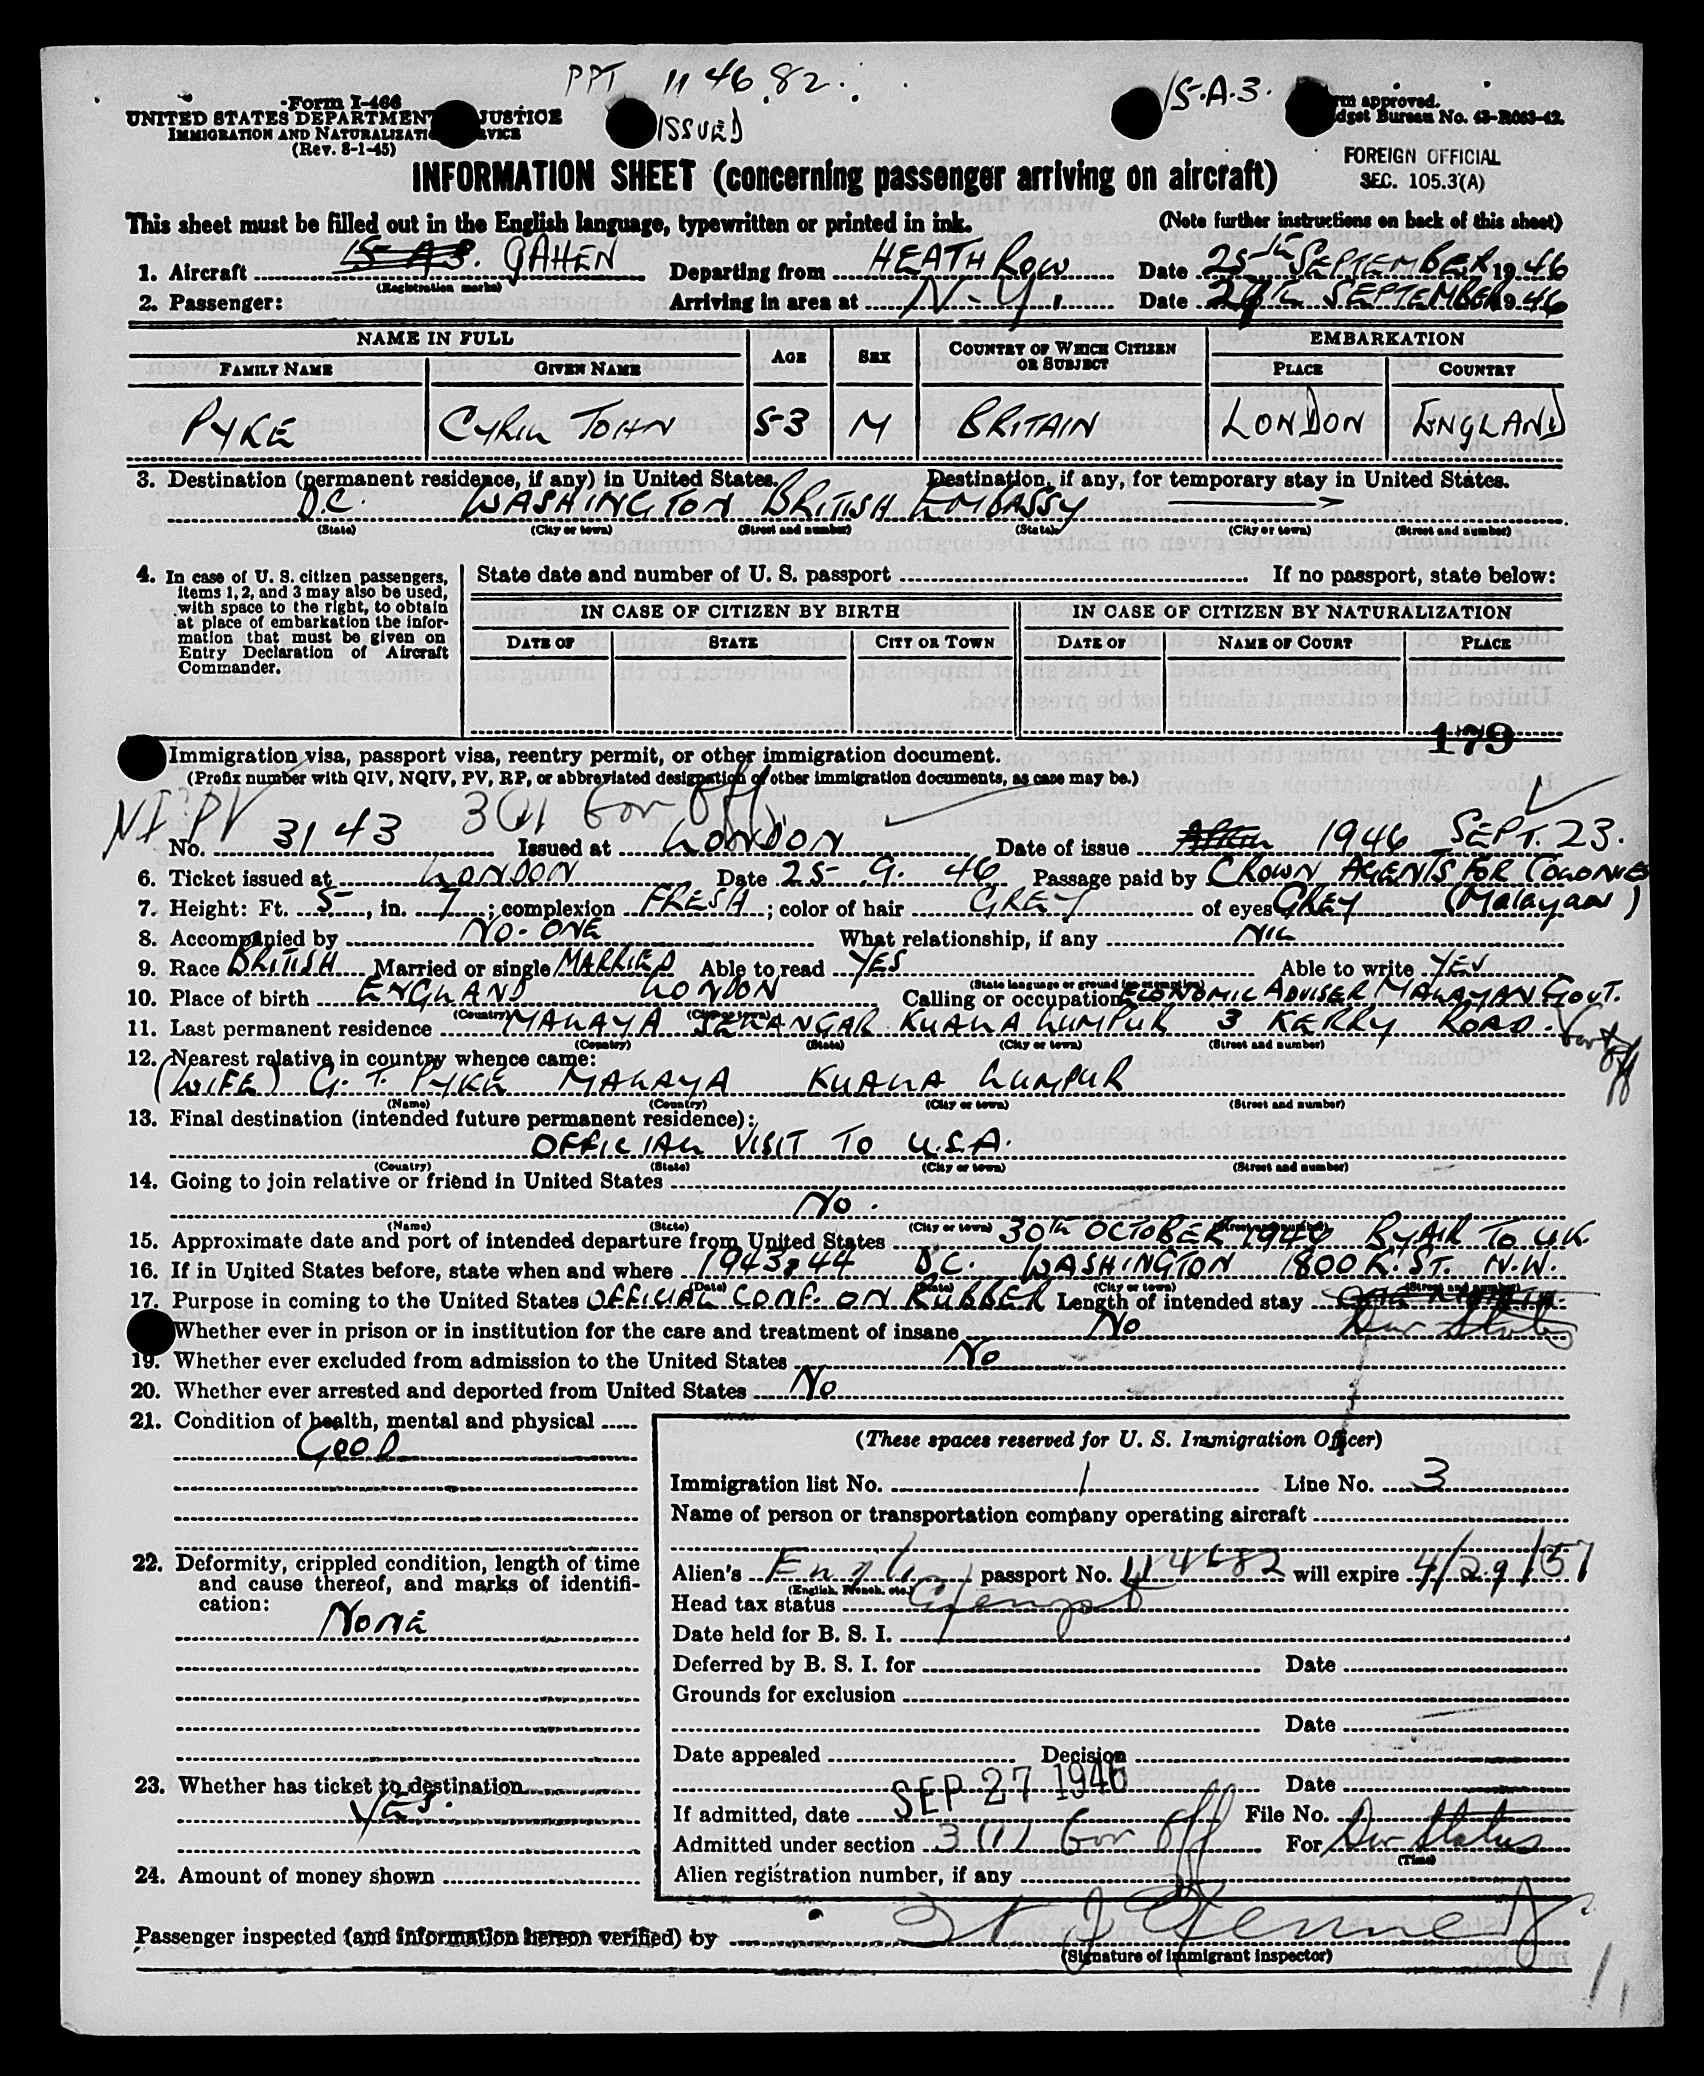 PPT 114682.
15.A.3.
Form I-466
UNITED STATES DEPARTMENT JUSTICE
IMMIGRATION AND NATURALIZATI RVICE
(Rev. 8-1-45)
ISSUED
rm approved.
dget Bureau No. 43-R063-42.
FOREIGN OFFICIAL
SEC. 105.3(A)
INFORMATION SHEET (concerning passenger arriving on aircraft)
This sheet must be filled out in the English language, typewritten or printed in ink.
(Note further instructions on back of this sheet)
1. Aircraft 15-A3. GAHEN Departing from HEATHROW Date 25th SEPTEMBER 1946
(Registration marks)
2. Passenger: Arriving in area at N-Y. Date 27th SEPTEMBER 1946
NAME IN FULL AGE SEX COUNTRY OF WHICH CITIZEN OR SUBJECT EMBARKATION
FAMILY NAME GIVEN NAME PLACE COUNTRY
PYKE CYRIL JOHN 53 M BRITAIN LONDON ENGLAND
3. Destination (permanent residence, if any) in United States. Destination, if any, for temporary stay in United States.
D.C. WASHINGTON BRITISH EMBASSY
(State) (City or town) (Street and number) (State) (City or town) (Street and number)
4. In case of U. S. citizen passengers, items 1, 2, and 3 may also be used, with space to the right, to obtain at place of embarkation the information that must be given on Entry Declaration of Aircraft Commander.
State date and number of U. S. passport If no passport, state below:
IN CASE OF CITIZEN BY BIRTH IN CASE OF CITIZEN BY NATURALIZATION
DATE OF STATE CITY OR TOWN DATE OF NAME OF COURT PLACE
179
Immigration visa, passport visa, reentry permit, or other immigration document.
(Prefix number with QIV, NQIV, PV, RP, or abbreviated designation of other immigration documents, as case may be.)
NI PV 3(1) Gov Off
No. 3143 Issued at LONDON Date of issue 1946 SEPT. 23.
6. Ticket issued at LONDON Date 25.9.46 Passage paid by CROWN AGENTS FOR COLONIES
7. Height: Ft. 5, in. 7; complexion FRESH; color of hair GREY of eyes GREY (Malayan)
8. Accompanied by NO-ONE What relationship, if any NIL
9. Race BRITISH Married or single MARRIED Able to read YES Able to write YES
(State language or ground for exemption)
10. Place of birth ENGLAND LONDON Calling or occupation ECONOMIC ADVISER MALAYAN GOVT.
(Country) (City or town)
11. Last permanent residence MALAYA SELANGAR KUALA LUMPUR 3 KERRY ROAD.
Gov Off
(Country) (State) (City or town) (Street and number)
12. Nearest relative in country whence came:
(WIFE) G. T. PYKE MALAYA KUALA LUMPUR
(Name) (Country) (City or town) (Street and number)
13. Final destination (intended future permanent residence):
OFFICIAL VISIT TO U.S.A.
(Country) (State) (City or town) (Street and number)
14. Going to join relative or friend in United States
No.
(Name) (State) (City or town) (Street and number)
15. Approximate date and port of intended departure from United States 30th OCTOBER 1946 BY AIR TO U.K.
16. If in United States before, state when and where 1943,44 D.C. WASHINGTON 1800 K. ST. N.W.
(Date) (State) (City or town) (Street and number)
17. Purpose in coming to the United States OFFICIAL CONF. ON RUBBER Length of intended stay
Dur Status
Whether ever in prison or in institution for the care and treatment of insane No
19. Whether ever excluded from admission to the United States No
20. Whether ever arrested and deported from United States No
21. Condition of health, mental and physical
GOOD
(These spaces reserved for U. S. Immigration Officer)
Immigration list No. 1 Line No. 3
Name of person or transportation company operating aircraft
22. Deformity, crippled condition, length of time and cause thereof, and marks of identification:
NONE
Alien's Engl passport No. 114682 will expire 4/29/51
(English, French, etc.)
Head tax status Exempt
Date held for B. S. I.
Deferred by B. S. I. for Date
Grounds for exclusion
Date
Date appealed Decision
23. Whether has ticket to destination
YES.
Date
If admitted, date SEP 27 1946 File No.
Admitted under section 3(1) Gov Off For Dur Status
(Time)
24. Amount of money shown
Alien registration number, if any
Passenger inspected (and information hereon verified) by
(Signature of immigrant inspector)